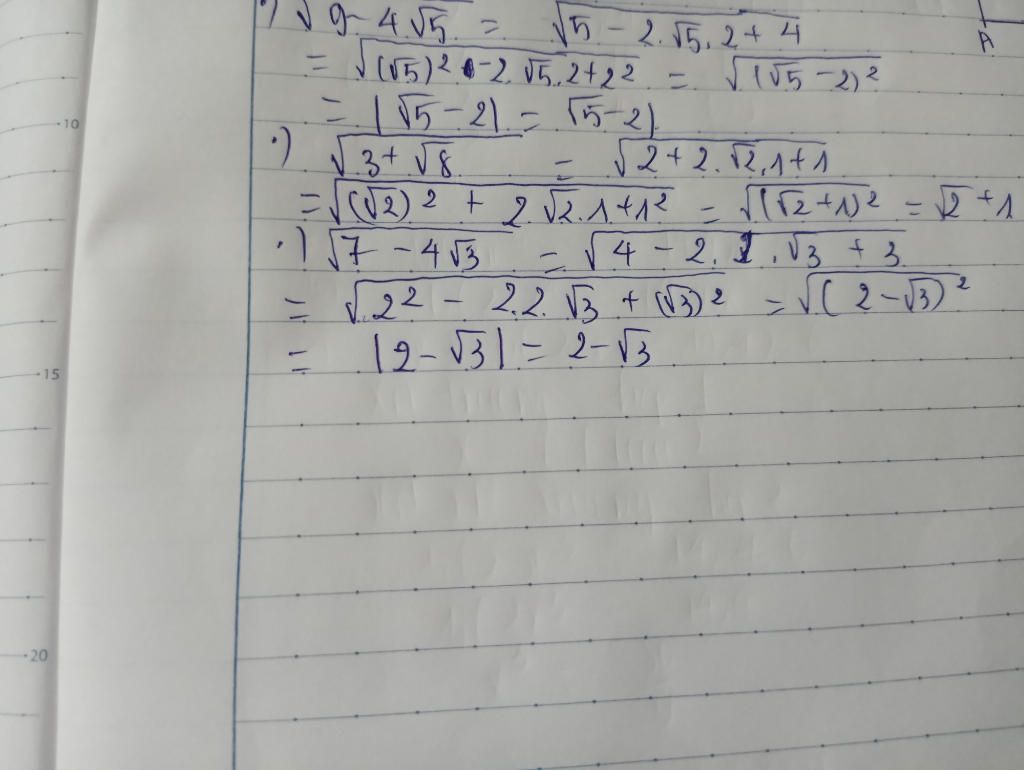 ·) √9 - 4√5 = √5 - 2.√5.2 + 4
= √(√5)² - 2.√5.2 + 2² = √(√5 - 2)²
= |√5 - 2| = √5 - 2|
·) √3 + √8 = √2 + 2.√2.1 + 1
= √(√2)² + 2√2.1 + 1² = √(√2 + 1)² = √2 + 1
·) √7 - 4√3 = √4 - 2.2.√3 + 3
= √2² - 2.2.√3 + (√3)² = √(2 - √3)²
= |2 - √3| = 2 - √3
A
10
15
20